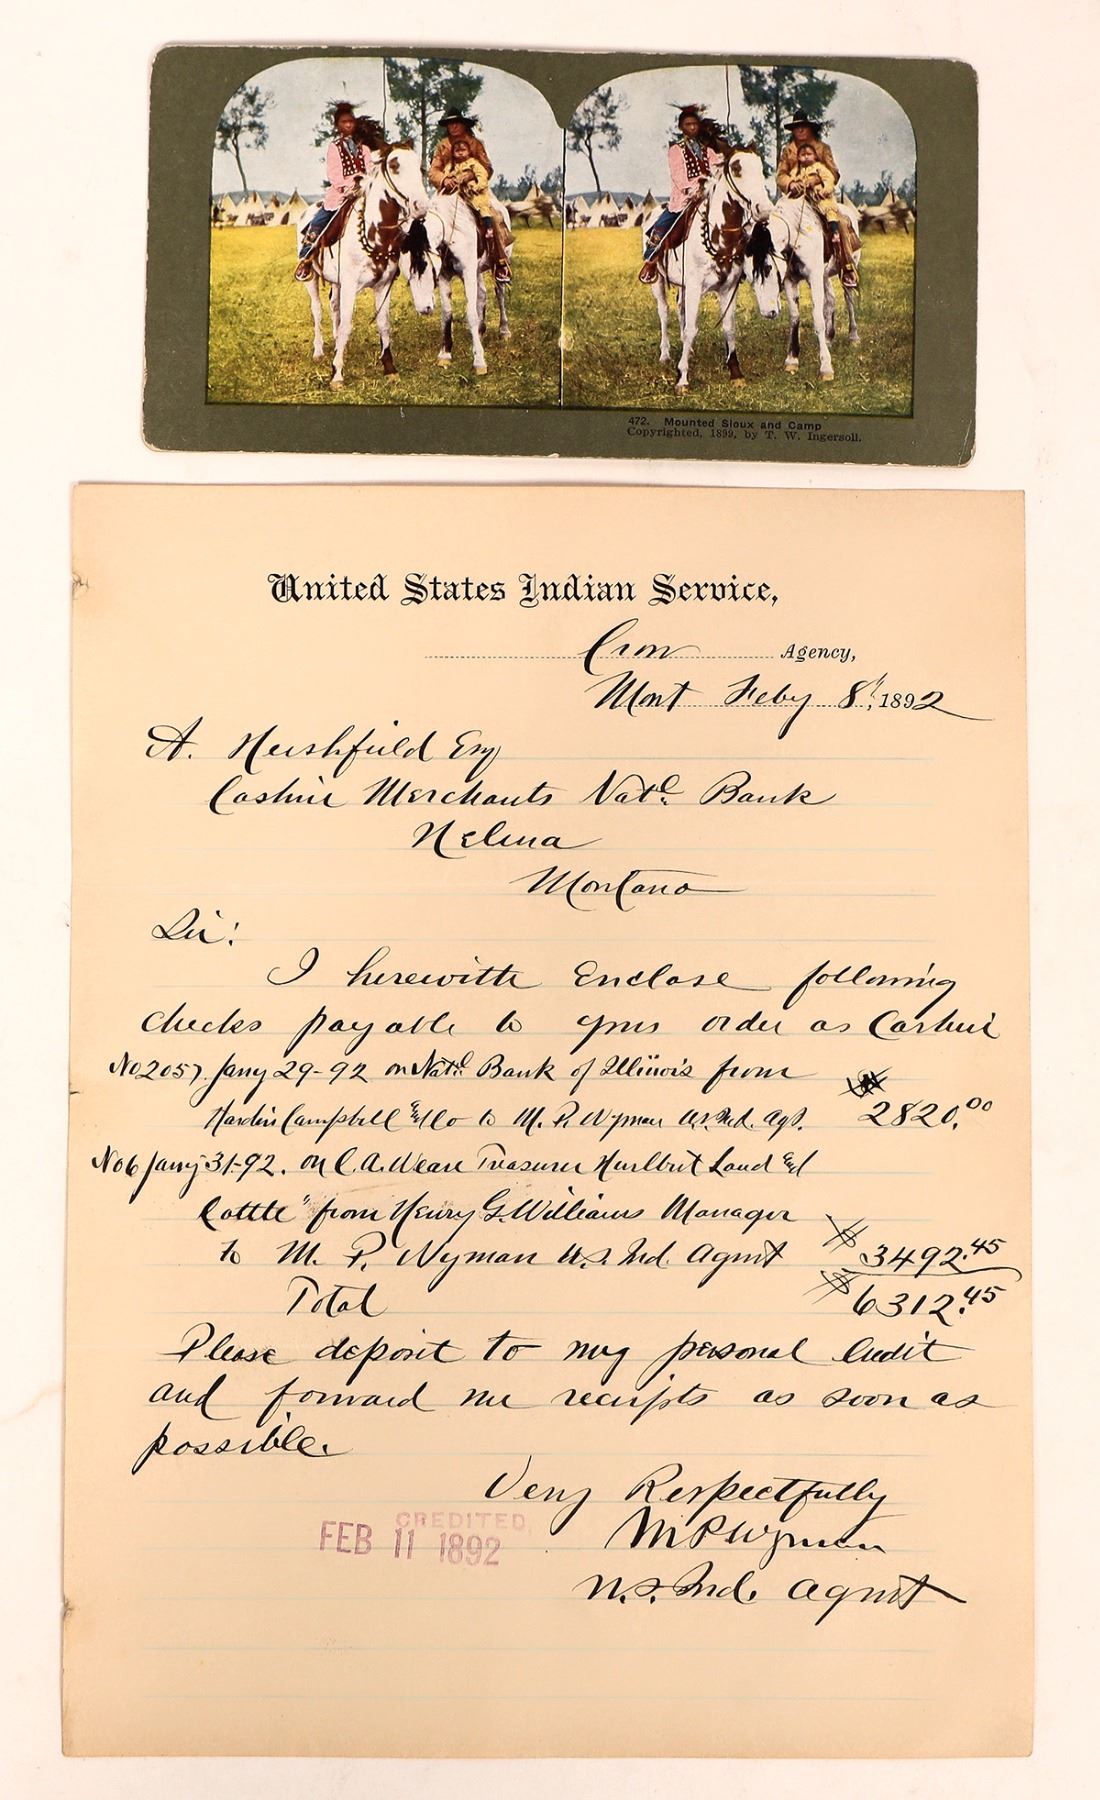 472. Mounted Sioux and Camp
Copyrighted, 1899, by T. W. Ingersoll.
United States Indian Service,
Crow Agency,
Mont Feby 8", 1892
A. Hershfield Esq
Cashier Merchants Natl. Bank
Helena
Montana
Sir:
I herewith Enclose following
checks payable to your order as Cashier
No 2057. Jany 29-92 on Natl Bank of Illinois from
Hardin Campbell & Co to M. P. Wyman U.S. Ind. Agt. 2820.00
No 6 Jany 31-92. on C. A. Weare Treasurer Hurlbut Land &
Cattle" from Henry G. Williams Manager
to M. P. Wyman U.S. Ind. Agent $ 3492.45
Total $ 6312.45
Please deposit to my personal Credit
and forward me receipts as soon as
possible.
Very Respectfully
M P Wyman
U.S. Ind. Agent
CREDITED
FEB 11 1892